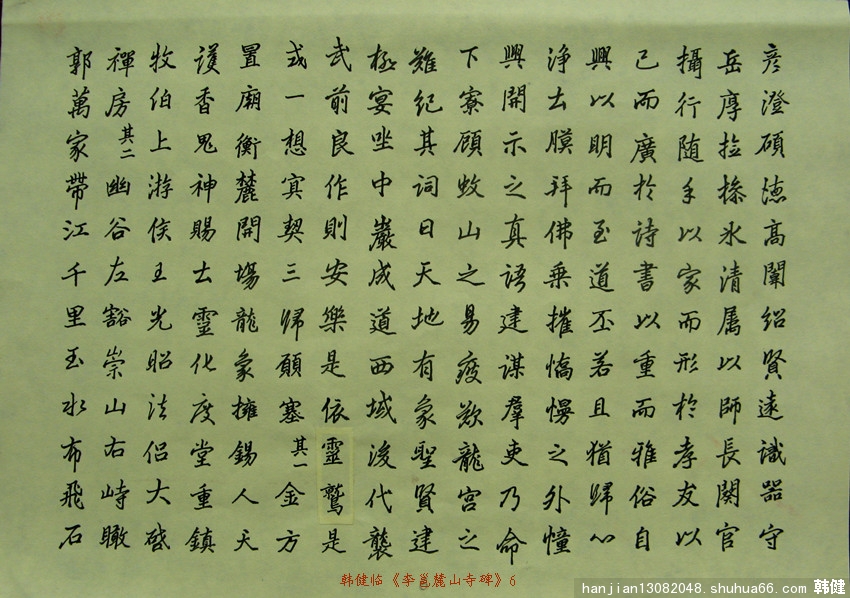 彦澄碩德高闡紹賢遠識器守
岳厚捡操氷清属以師長闕官
攝行随手以家而形於孝友以
已而廣於詩書以重而雅俗自
興以明而至道丕若且猶歸心
浄土膜拜佛乗摧憍慢之外憧
興開示之真語建謀羣吏乃命
下寮顧蚊山之易疲欻龍宮之
難紀其詞曰天地有象聖賢建
極宴坐中巖成道西域後代襲
武前良作則安樂是依靈鷲是
或一想㝠契三歸願塞其一金方
置廟衡麓開場龍象擁錫人天
護香鬼神賜土靈化度堂重鎮
牧伯上游侯王光昭法侣大啓
禪房其二幽谷左豁崇山右峙瞰
郭萬家帶江千里玉水布飛石
韩健临《李邕麓山寺碑》6
hanjian13082048.shuhua66.com 韩健